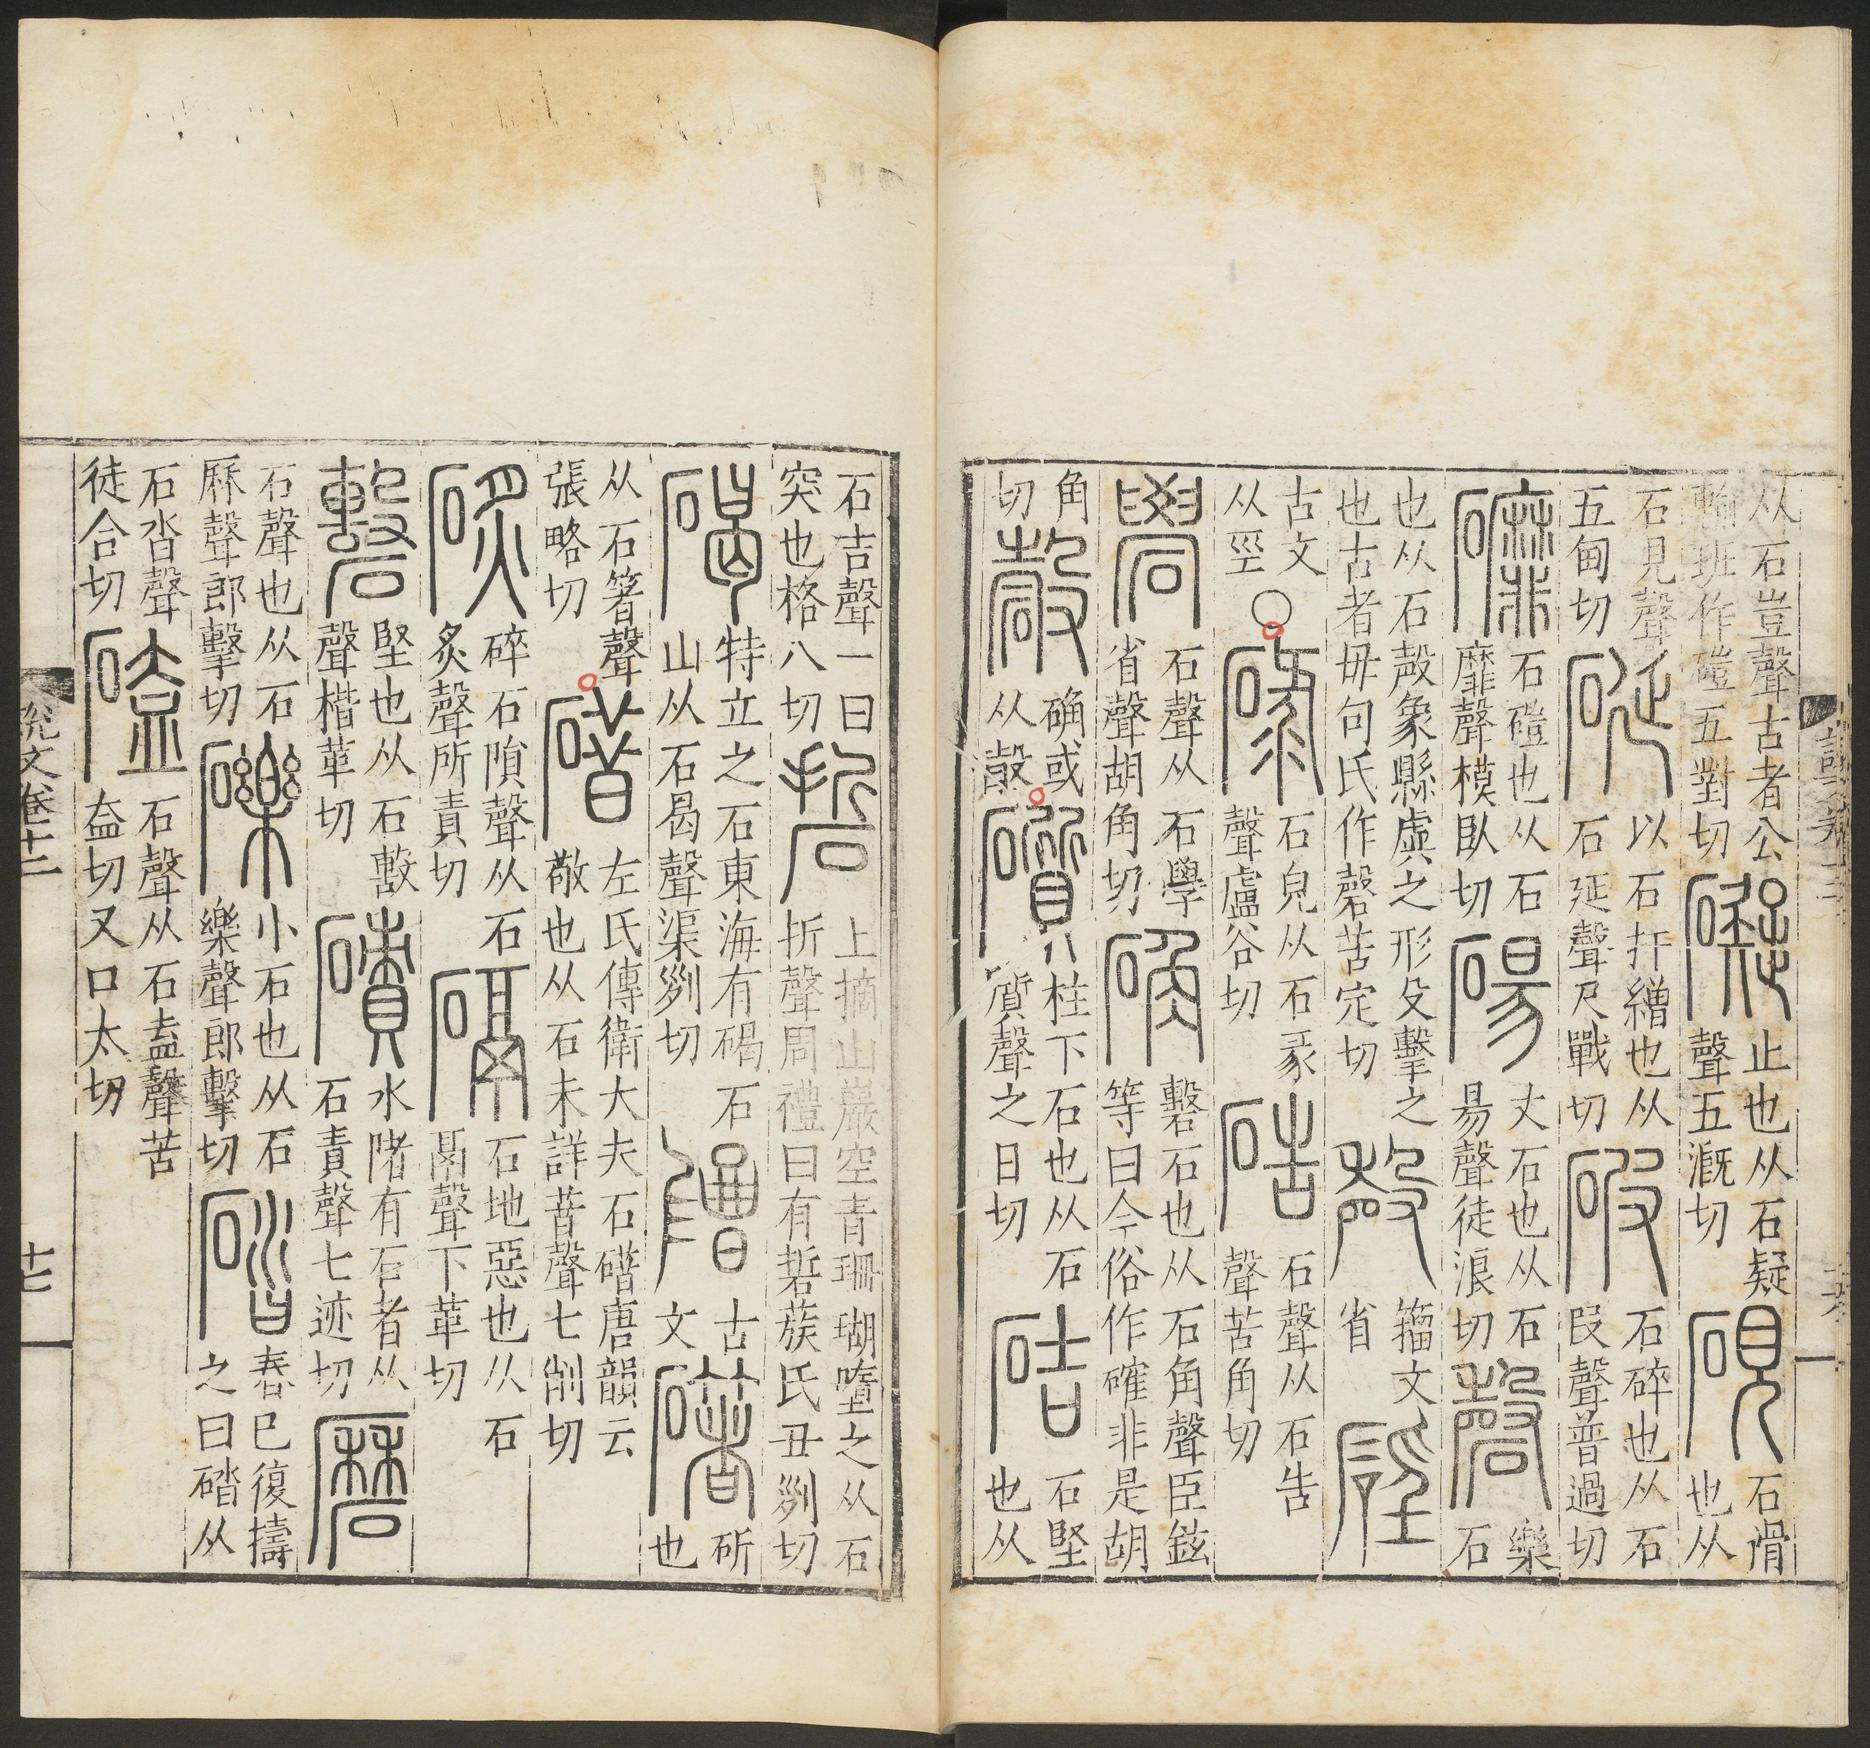 从石豈聲古者公輸班作磑五對切礙止也从石疑聲五溉切硯石滑也从
石見聲五甸切硟以石扞繒也从石延聲尺戰切破石碎也从石叚聲普過切
䃺石磑也从石靡聲模臥切碭丈石也从石昜聲徒浪切磬樂石
也从石殸象縣虡之形殳擊之也古者毋句氏作磬苦定切殸籀文省硜
古文从巠○碌石皃从石彔聲盧谷切硞石聲从石告聲苦角切
礐石聲从石學省聲胡角切确磬石也从石角聲臣鉉等曰今俗作確非是胡
角切㱿确或从㱿礩柱下石也从石質聲之日切硈石堅也从
石吉聲一曰突也格八切硩上摘山巖空青珊瑚墮之从石折聲周禮曰有硩蔟氏丑列切
碣特立之石東海有碣石山从石曷聲渠列切古文䃴斫也
从石箸聲張略切碏左氏傳衛大夫石碏唐韻云敬也从石未詳昔聲七削切
碎石隕聲从石炙聲所責切䃒石地惡也从石鬲聲下革切
䃘堅也从石毄聲楷革切磧水陼有石者从石責聲七迹切
石聲也从石厤聲郎擊切礫小石也从石樂聲郎擊切䃚舂已復擣之曰䃚从
石沓聲徒合切磕石聲从石盍聲苦盍切又口太切
說文卷十二
十七